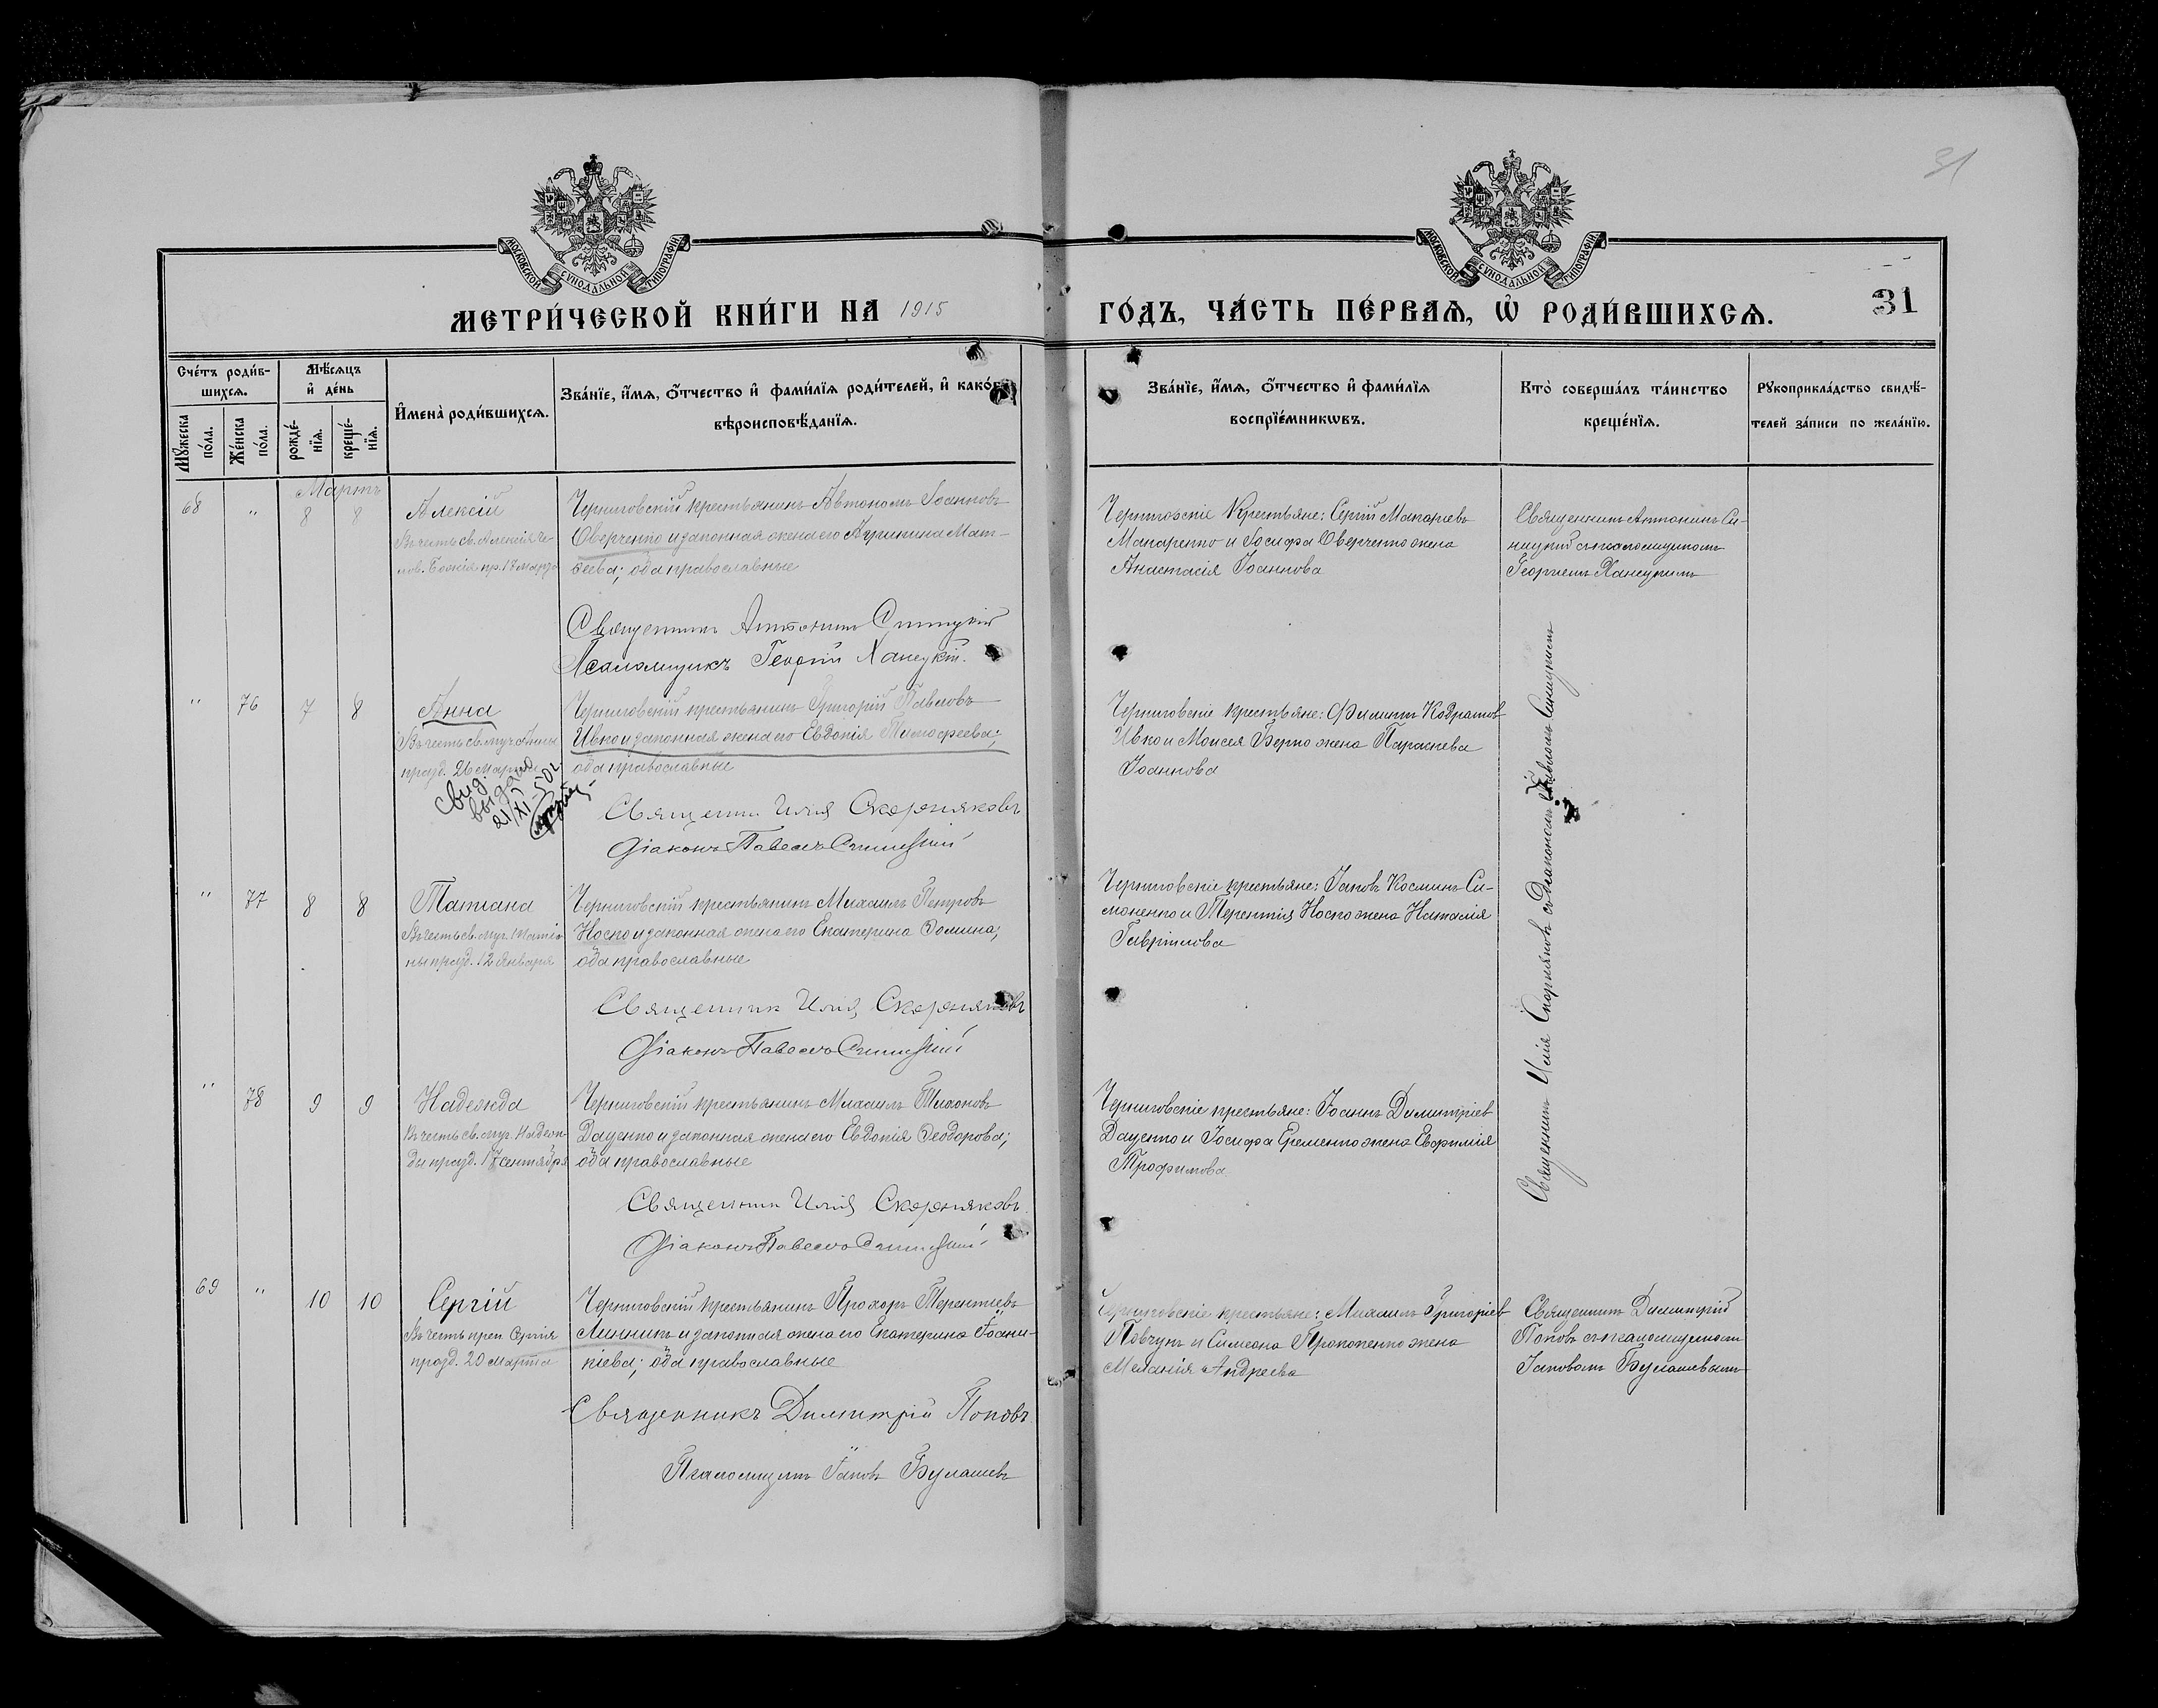 31
МОСКОВСКОЙ СУНОДАЛЬНОЙ ТИПОГРАФІИ
МОСКОВСКОЙ СУНОДАЛЬНОЙ ТИПОГРАФІИ
МЕТРИ́ЧЕСКОЙ КНИ́ГИ НА 1915
ГО́ДЪ, ЧА́СТЬ ПЕ́РВАѦ, Ѡ҆ РОДИ́ВШИХСѦ. 31
Сче́тъ роди́в-
шихсѧ.
Мꙋ́жеска
по́ла.
Же́нска
по́ла.
Мѣ́сѧцъ
и҆ де́нь
рожде́-
нїѧ.
креще́-
нїѧ.
И҆мена̀ роди́вшихсѧ.
Зва́нїе, и҆́мѧ, ѻ҆́тчество и҆ фами́лїѧ роди́телей, и҆ како́гѡ
вѣроисповѣ́данїѧ.
Зва́нїе, и҆́мѧ, ѻ҆́тчество и҆ фами́лїѧ
воспрїе́мникѡвъ.
Кто̀ соверша́лъ та́инство
креще́нїѧ.
Рꙋкоприкла́дство свидѣ́-
телей за́писи по жела́нїю.
Мартъ
68 " 8 8
Алексій
Въ честь св. Алексія Че-
лов. Божія пр. 17 марта
Черниговскій крестьянинъ Автономъ Іоанновъ
Оверченко и законная жена его Агрипина Мат-
ѳеева; оба православные
Священникъ Антонинъ Синицкій
Псаломщикъ Георгій Ханецкій.
Черниговскіе Крестьяне: Сергій Макаріевъ
Макаренко и Іосифа Оверченко жена
Анастасія Іоаннова
Священникъ Антонинъ Си-
ницкій съ псаломщикомъ
Георгіемъ Ханецкимъ
" 76 7 8
Анна
Въ честь св. муч. Анны
празд. 26 Марта
Свид.
выдано
21/XI-50г.
Черниговскій крестьянинъ Григорій Павловъ
Ивко и законная жена его Евдокія Тимоѳеева;
оба православные
Священникъ Илія Скорняковъ
Діаконъ Павелъ Синицкій
Черниговскіе крестьяне: Филиппъ Кодратовъ
Ивко и Моисея Берко жена Параскева
Іоаннова
Священникъ Илія Скорняковъ съ діакономъ Павломъ Синицкимъ
" 77 8 8
Татіана
Въ честь св. муч. Татіа-
ны празд. 12 Января
Черниговскій крестьянинъ Михаилъ Петровъ
Носко и законная жена его Екатерина Ѳомина;
оба православные
Священник Илія Скорняковъ
Діаконъ Павелъ Синицкій
Черниговскіе крестьяне: Іаковъ Косминъ Си-
моненко и Терентія Носко жена Наталія
Гавріилова
" 78 9 9
Надежда
Въ честь св. муч. Надеж-
ды празд. 17 сентября
Черниговскій крестьянинъ Михаилъ Тихоновъ
Даценко и законная жена его Евдокія Ѳеодорова;
оба православные
Священникъ Илія Скорняковъ
Діаконъ Павелъ Синицкій
Черниговскіе крестьяне: Іоаннъ Димитріевъ
Даценко и Іосифа Еременко жена Евфимія
Трофимова
69 " 10 10
Сергій
Въ честь преп. Сергія
празд. 20 марта
Черниговскій крестьянинъ Прохоръ Терентіевъ
Линникъ и законная жена его Екатерина Іоанн-
кіева; оба православные
Священникъ Димитрій Поповъ
Псаломщикъ Іаковъ Булашевъ
Черниговскіе крестьяне: Михаилъ Григоріев
Повчунъ и Симеона Прокопенко жена
Меланія Андреева
Священникъ Димитрій
Поповъ съ псаломщикомъ
Іаковомъ Булашевымъ